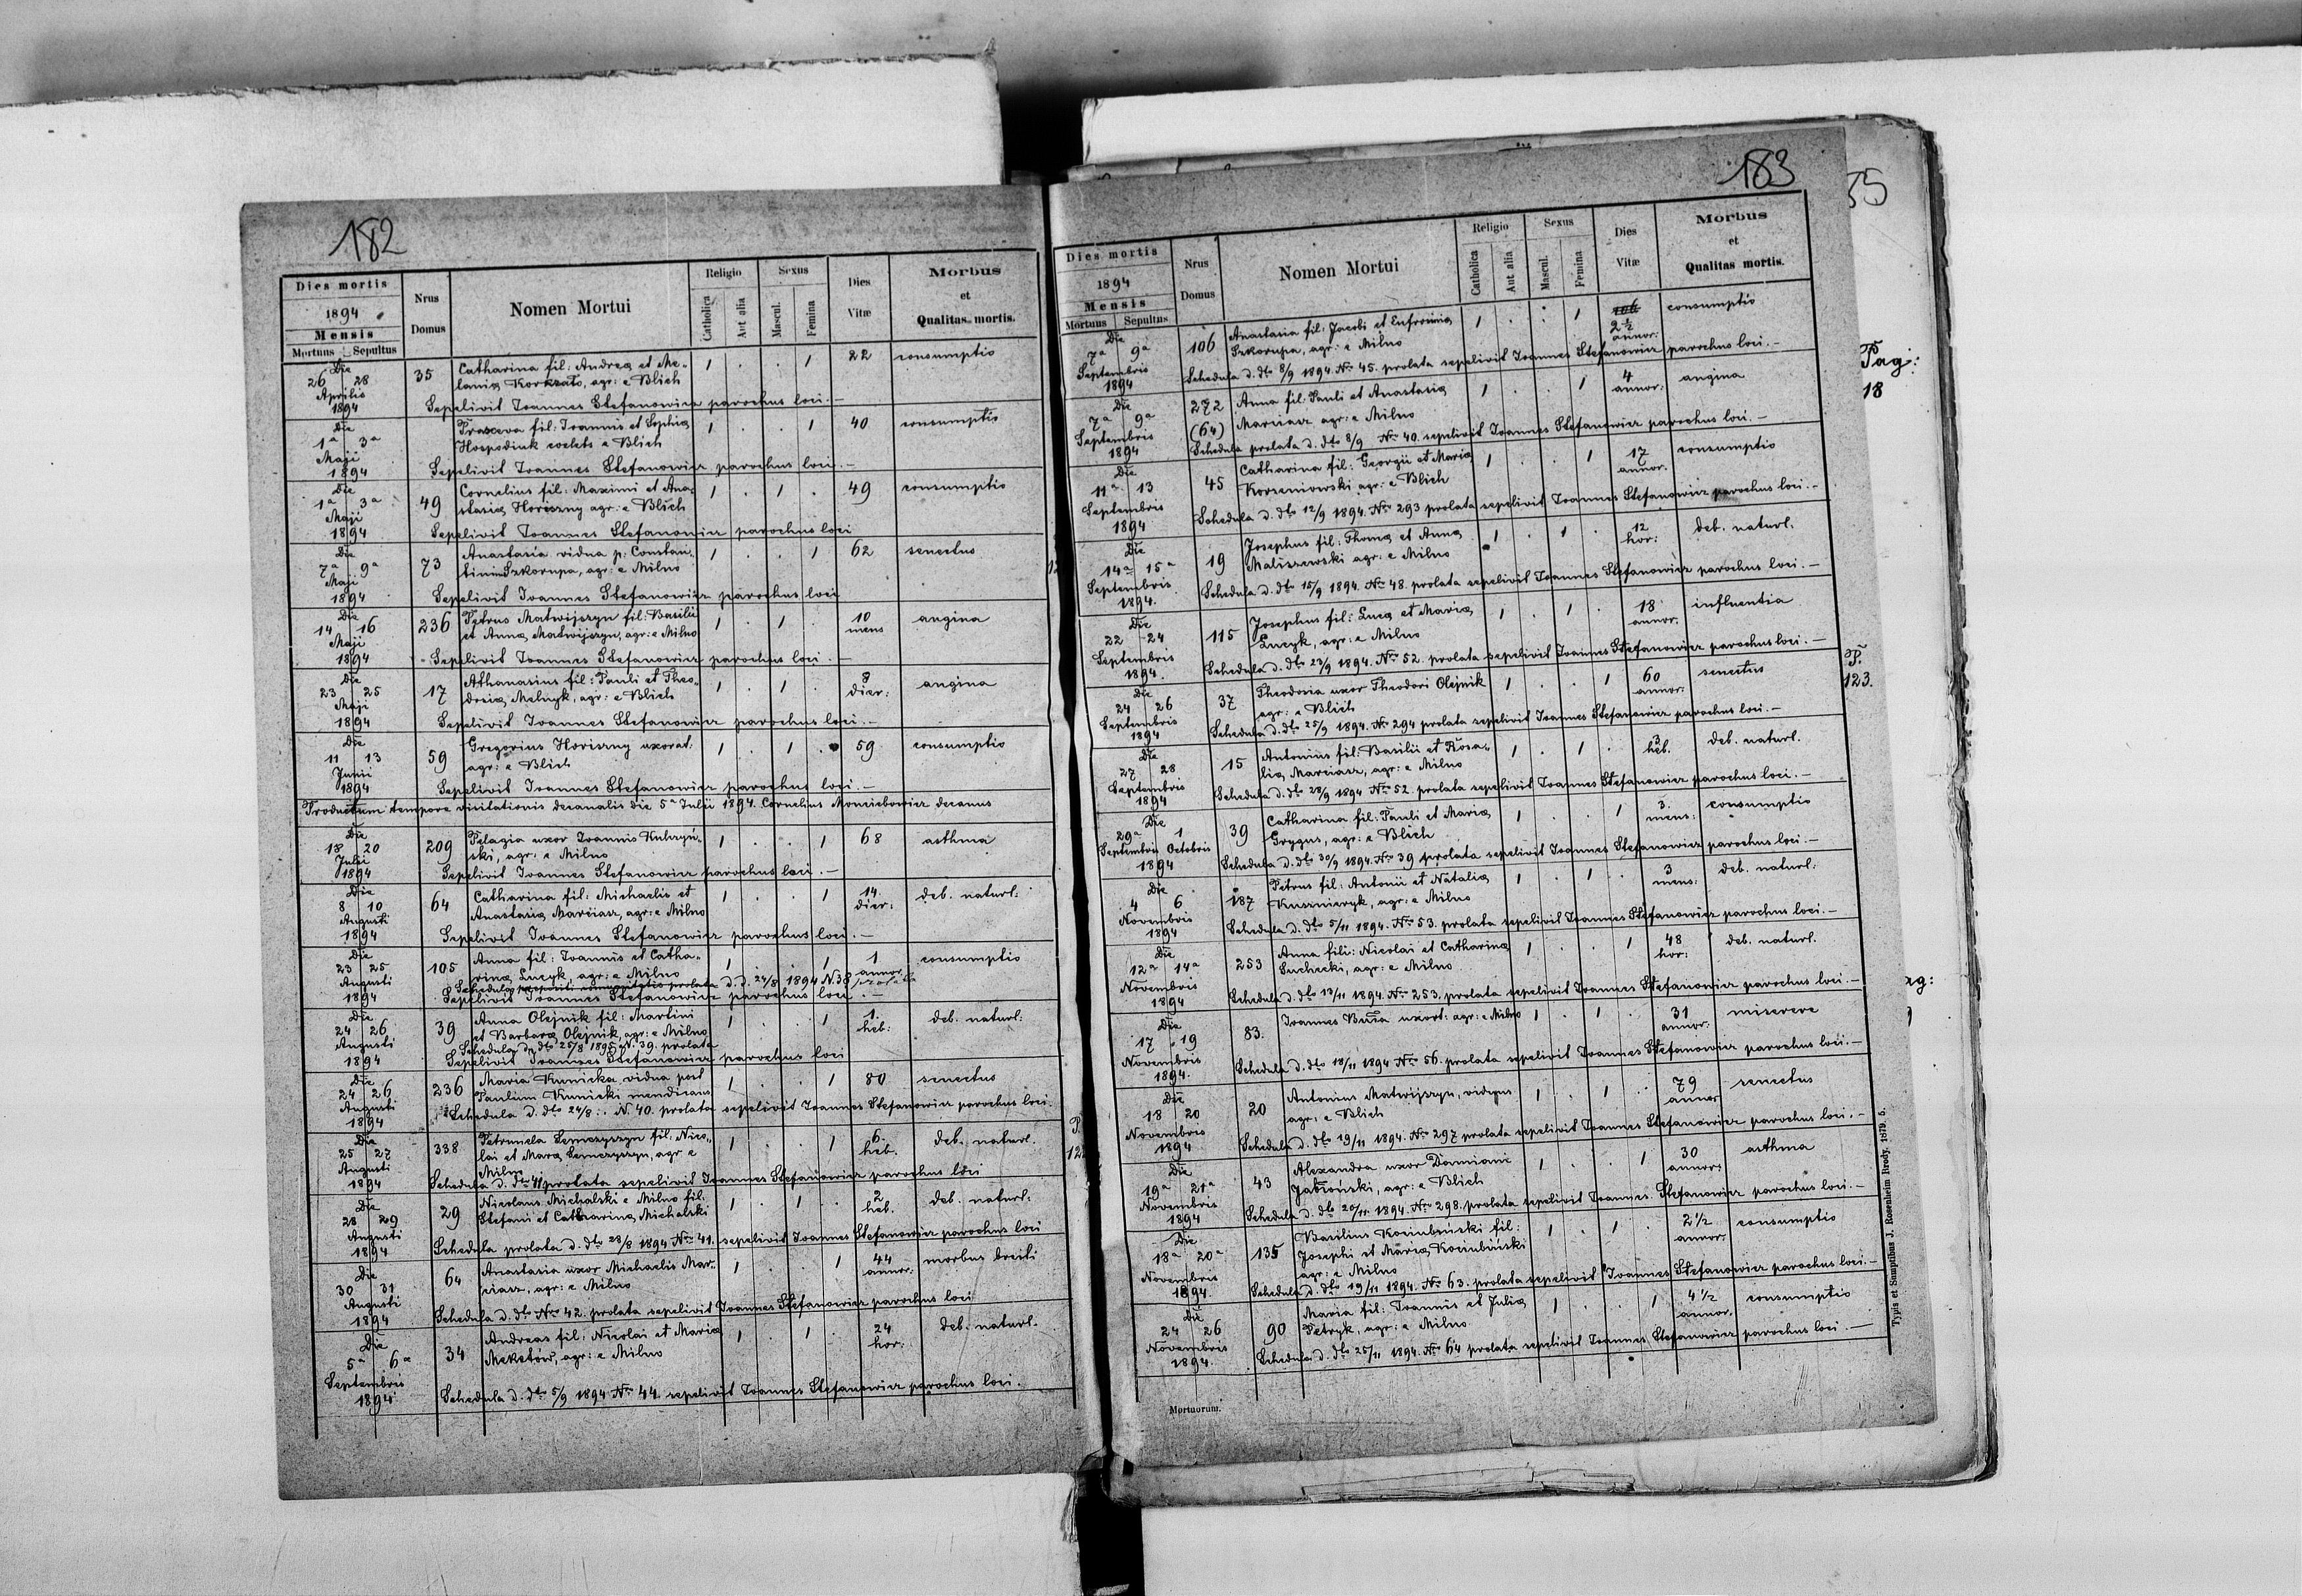 182
Dies mortis
1894
Mensis
Mortuus Sepultus
Nrus Domus
Nomen Mortui
Religio
Catholica Aut alia
Sexus
Mascul. Femina
Dies Vitæ
Morbus et Qualitas mortis.
Die 26 28 Aprilis 1894
35 Catharina fil: Andreæ et Me-
laniæ, agr: e Blich 1 . . 1 22 consumptio
Sepelivit Joannes Stefanowicz parochus loci. —
Die 1ª 3ª Maji 1894
Praxeva fil: Joannis et Sophiæ
Hospodiuk coelebs e Blich 1 . . 1 40 consumptio
Sepelivit Joannes Stefanowicz parochus loci. —
Die 1ª 3ª Maji 1894
49 Cornelius fil: Maximi et Ana-
stasiæ Horiszny agr: e Blich 1 . 1 . 49 consumptio
Sepelivit Joannes Stefanowicz parochus loci
Die 7ª 9ª Maji 1894
73 Anastasia vidua p: Constan-
tinum Szkorupa, agr: e Milno 1 . . 1 62 senectus
Sepelivit Joannes Stefanowicz parochus loci
Die 14 16 Maji 1894
236 Petrus Matwijszyn fil: Basilii
et Annæ Matwijszyn, agr: e Milno 1 . 1 . 10 mens angina
Sepelivit Joannes Stefanowicz parochus loci. —
Die 23 25 Maji 1894
17 Athanasius fil: Pauli et Theo-
dosiæ Melnyk, agr: e Blich 1 . 1 . 8 dier: angina
Sepelivit Joannes Stefanowicz parochus loci. —
Die 11 13 Junii 1894
59 Gregorius Horiszny uxorat:
agr: e Blich 1 . 1 . 59 consumptio
Sepelivit Joannes Stefanowicz parochus loci. —
Productum tempore visitationis decanalis die 5ª Julii 1894. Cornelius decanus
Die 18 20 Julii 1894
209 Pelagia uxor Joannis Kuhryń-
ski, agr: e Milno 1 . . 1 68 asthma
Sepelivit Joannes Stefanowicz parochus loci. —
Die 8 10 Augusti 1894
64 Catharina fil: Michaelis et
Anastasiæ Marciasz, agr: e Milno 1 . . 1 14 dier: deb. naturl:
Sepelivit Joannes Stefanowicz parochus loci. —
Die 23 25 Augusti 1894
105 Anna fil: Joannis et Catha-
rinæ Luczyk agr: e Milno 1 . . 1 1 annor consumptio
Schedula prolata d. d. 24/8 1894 N. 38
Sepelivit Joannes Stefanowicz parochus loci. —
Die 24 26 Augusti 1894
39 Anna Olejnik fil: Martini
et Barbaræ Olejnik, agr: e Milno 1 . . 1 1. heb: deb. naturl:
Schedula d. dto 25/8 1895 N. 39. prolata
Sepelivit Joannes Stefanowicz parochus loci
Die 24 26 Augusti 1894
236 Maria Kunicka, vidua post
Paulum Kunicki mendicans 1 . . 1 80 senectus
Schedula d. dto 24/8 N 40. prolata sepelivit Joannes Stefanowicz parochus loci.
Die 25 27 Augusti 1894
338 Petrunela Semczyszyn fil: Nico-
lai et Maræ Semczyszyn, agr e
Milno 1 . . 1 6 heb. deb. naturl.
Schedula d. dto 41 prolata sepelivit Joannes Stefanowicz parochus loci
Die 28 29 Augusti 1894
29 Nicolaus Michalski e Milno fil:
Stefani et Catharinæ Michalski 1 . 1 . 2 heb. deb. naturl:
Schedula prolata d. dto 28/8 1894 Nro 41. sepelivit Joannes Stefanowicz parochus loci
Die 30 31 Augusti 1894
64 Anastasia uxor Michaelis Mar-
ciasz, agr: e Milno 1 . . 1 44 annor: morbus
Schedula d. dto Nro 42. prolata sepelivit Joannes Stefanowicz parochus loci
Die 5ª 6ª Septembris 1894
34 Andreas fil: Nicolai et Mariæ
Meketów, agr: e Milno 1 . 1 . 24 hor: deb. naturl.
Schedula d. dto 5/9 1894 Nro 44. sepelivit Joannes Stefanowicz parochus loci.
183
Dies mortis
1894
Mensis
Mortuus Sepultus
Nrus Domus
Nomen Mortui
Religio
Catholica Aut alia
Sexus
Mascul. Femina
Dies Vitæ
Morbus et Qualitas mortis.
Die 7ª 9ª Septembris 1894
106 Anastasia fil: Jacobi et Eufrosinæ
Szkorupa, agr: e Milno 1 . . 1 2½ annor: consumptio
Schedula d. dto 8/9 1894 Nro 45. prolata sepelivit Joannes Stefanowicz parochus loci. —
Die 7ª 9ª Septembris 1894
272 (64) Anna fil: Pauli et Anastasiæ
Marciasz agr: e Milno 1 . . 1 4 annor: angina
Schedula prolata d. dto 8/9 Nro 40. sepelivit Joannes Stefanowicz parochus loci. —
Die 11ª 13 Septembris 1894
45 Catharina fil: Georgii et Mariæ
Korzeniowski agr: e Blich 1 . . 1 17 annor. consumptio
Schedula d. dto 12/9 1894. Nro 293 prolata sepelivit Joannes Stefanowicz parochus loci. —
Die 14ª 15ª Septembris 1894.
19 Josephus fil: Thomæ et Annæ
Maliszewski agr: e Milno 1 . 1 . 12 hor: deb. naturl.
Schedula d. dto 15/9 1894. Nro 48. prolata sepelivit Joannes Stefanowicz parochus loci. —
Die 22 24 Septembris 1894.
115 Josephus fil: Lucæ et Mariæ
Luczyk, agr: e Milno 1 . 1 . 18 annor. influentia
Schedula d. dto 23/9 1894. Nro 52. prolata sepelivit Joannes Stefanowicz parochus loci. —
Die 24 26 Septembris 1894
37 Theodosia uxor Theodori Olejnik
agr: e Blich 1 . . 1 60 annor: senectus
Schedula d. dto 25/9 1894. Nro 294 prolata sepelivit Joannes Stefanowicz parochus loci. —
Die 27 28 Septembris 1894
15 Antonius fil: Basilii et Rosa-
liæ Marciasz, agr: e Milno 1 . 1 . 3 heb. deb. naturl.
Schedula d. dto 28/9 1894 Nro 52. prolata sepelivit Joannes Stefanowicz parochus loci. —
Die 29ª 1 Septembris Octobris 1894
39 Catharina fil: Pauli et Mariæ
Grygus, agr: e Blich 1 . . 1 3. mens: consumptio
Schedula d. dto 30/9 1894. Nro 39 prolata sepelivit Joannes Stefanowicz parochus loci. —
Die 4 6 Novembris 1894
187 Petrus fil: Antonii et Nataliæ
Kusznieryk, agr: e Milno 1 . 1 . 3 mens: deb. naturl:
Schedula d. dto 5/11 1894. Nro 53. prolata sepelivit Joannes Stefanowicz parochus loci. —
Die 12ª 14ª Novembris 1894
253 Anna fili: Nicolai et Catharinæ
Suchecki, agr: e Milno 1 . . 1 48 hor: deb. naturl.
Schedula d. dto 13/11 1894. Nro 253. prolata sepelivit Joannes Stefanowicz parochus loci. —
Die 17 19 Novembris 1894.
83. Joannes Buła uxort: agr: e Milno 1 . 1 . 31 annor: miserere
Schedula d. dto 18/11 1894 Nro 56. prolata sepelivit Joannes Stefanowicz parochus loci. —
Die 18 20 Novembris 1894
20 Antonius Matwijszyn, viduus
agr: e Blich 1 . 1 . 79 annor senectus
Schedula d. dto 19/11 1894. Nro 297 prolata sepelivit Joannes Stefanowicz parochus loci. —
Die 19ª 21ª Novembris 1894
43 Alexandra uxor Damiani
Jabłoński, agr: e Blich 1 . . 1 30 annor: asthma
Schedula d. dto 20/11 1894. Nro 298. prolata sepelivit Joannes Stefanowicz parochus loci. —
Die 18ª 20ª Novembris 1894
135 Basilius Kociubiński fil:
Josephi et Mariæ Kociubiński
agr: e Milno 1 . 1 . 2½ annor. consumptio
Schedula d. dto 19/11 1894. Nro 63. prolata sepelivit Joannes Stefanowicz parochus loci. —
Die 24 26 Novembris 1894.
90 Maria fil: Joannis et Juliæ
Petryk, agr: e Milno 1 . . 1 4½ annor. consumptio
Schedula d. dto 25/11 1894. Nro 64 prolata sepelivit Joannes Stefanowicz parochus loci. —
Mortuorum.
Typis et Sumptibus J. Rosenheim Brody. 1879. 5.
55
Pag:
18
P.
123.
ag: